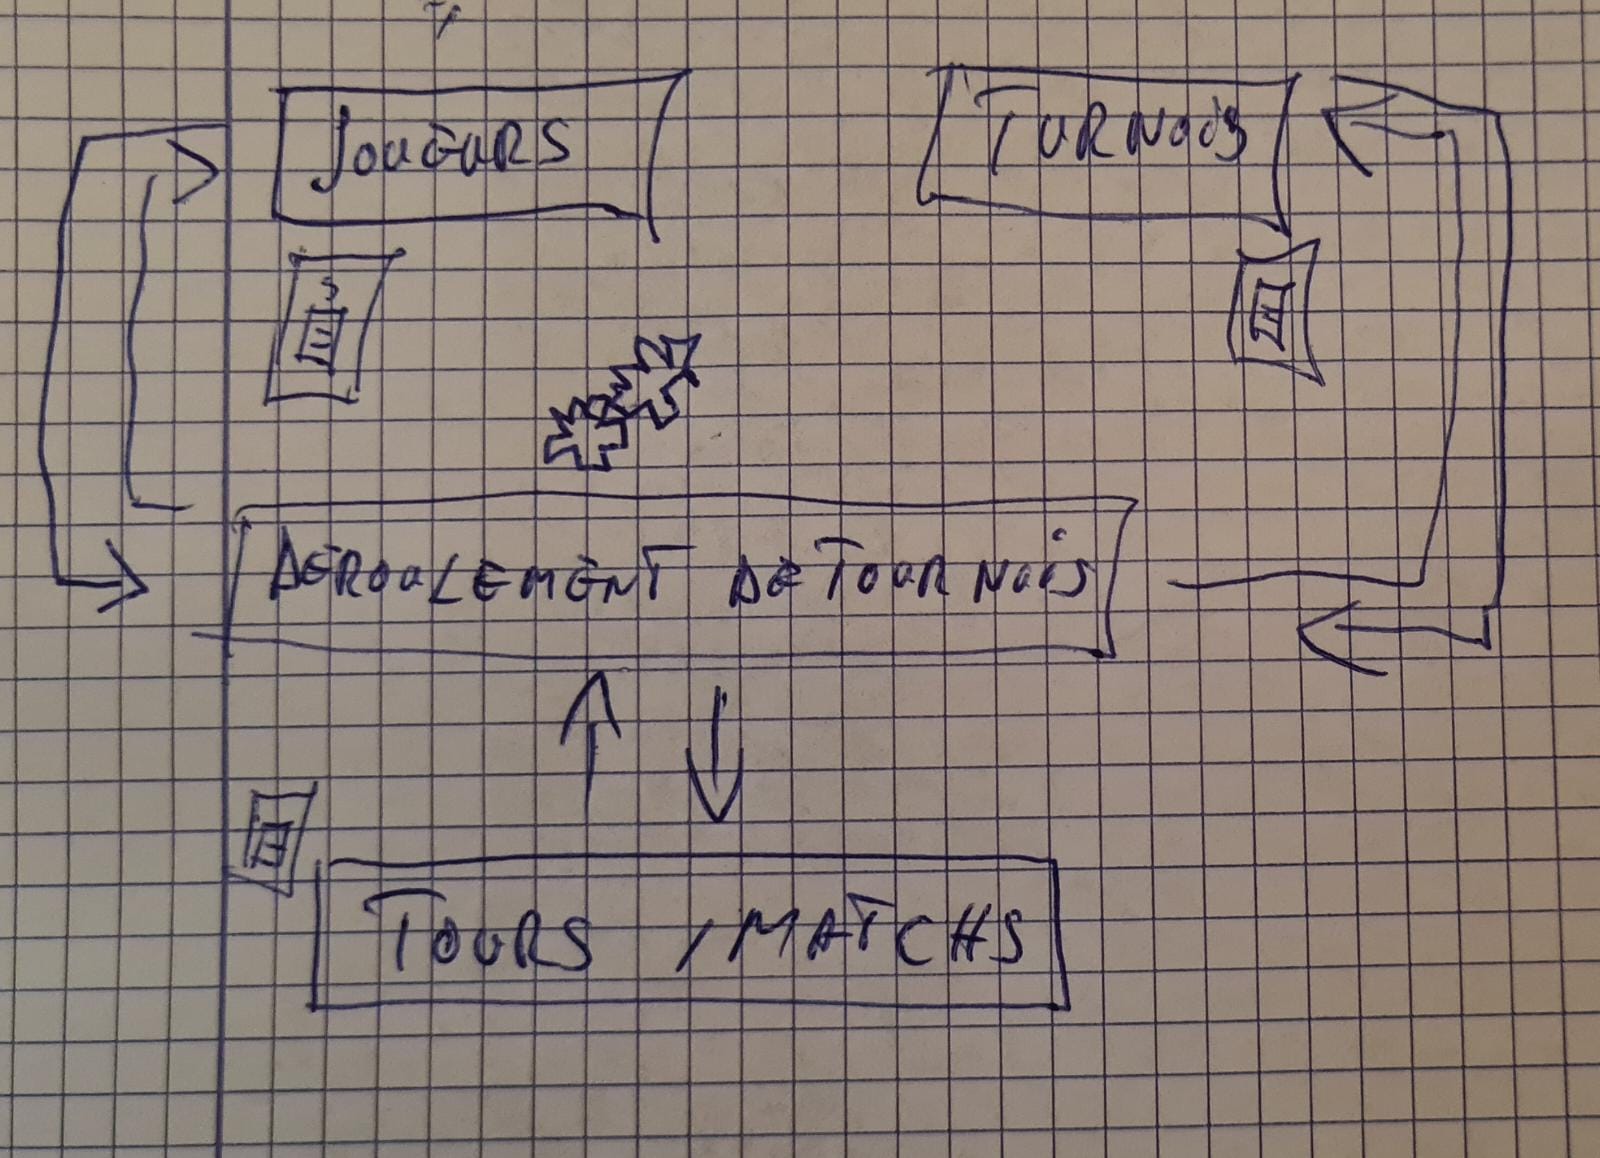 JOUEURS
TURNOIS
DEROULEMENT DE TOURNOIS
TOURS / MATCHS